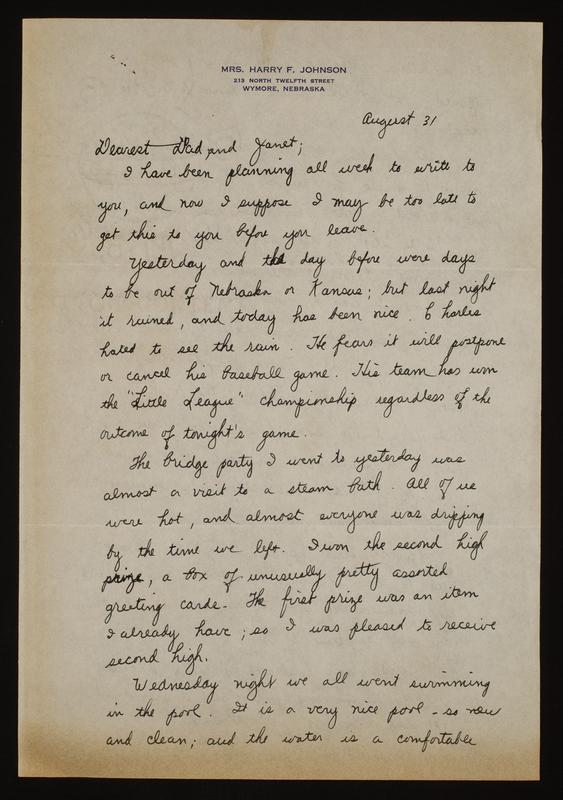 MRS. HARRY F. JOHNSON
213 NORTH TWELFTH STREET
WYMORE, NEBRASKA
August 31
Dearest Dad and Janet;
I have been planning all week to write to
you, and now I suppose I may be too late to
get this to you before you leave.
Yesterday and the day before were days
to be out of Nebraska or Kansas; but last night
it rained, and today has been nice. Charles
hated to see the rain. He fears it will postpone
or cancel his baseball game. His team has won
the "Little League" championship regardless of the
outcome of tonight's game.
The bridge party I went to yesterday was
almost a visit to a steam bath. All of us
were hot, and almost everyone was dripping
by the time we left. I won the second high
prize, a box of unusually pretty assorted
greeting cards. The first prize was an item
I already have; so I was pleased to receive
second high.
Wednesday night we all went swimming
in the pool. It is a very nice pool - so new
and clean; and the water is a comfortable